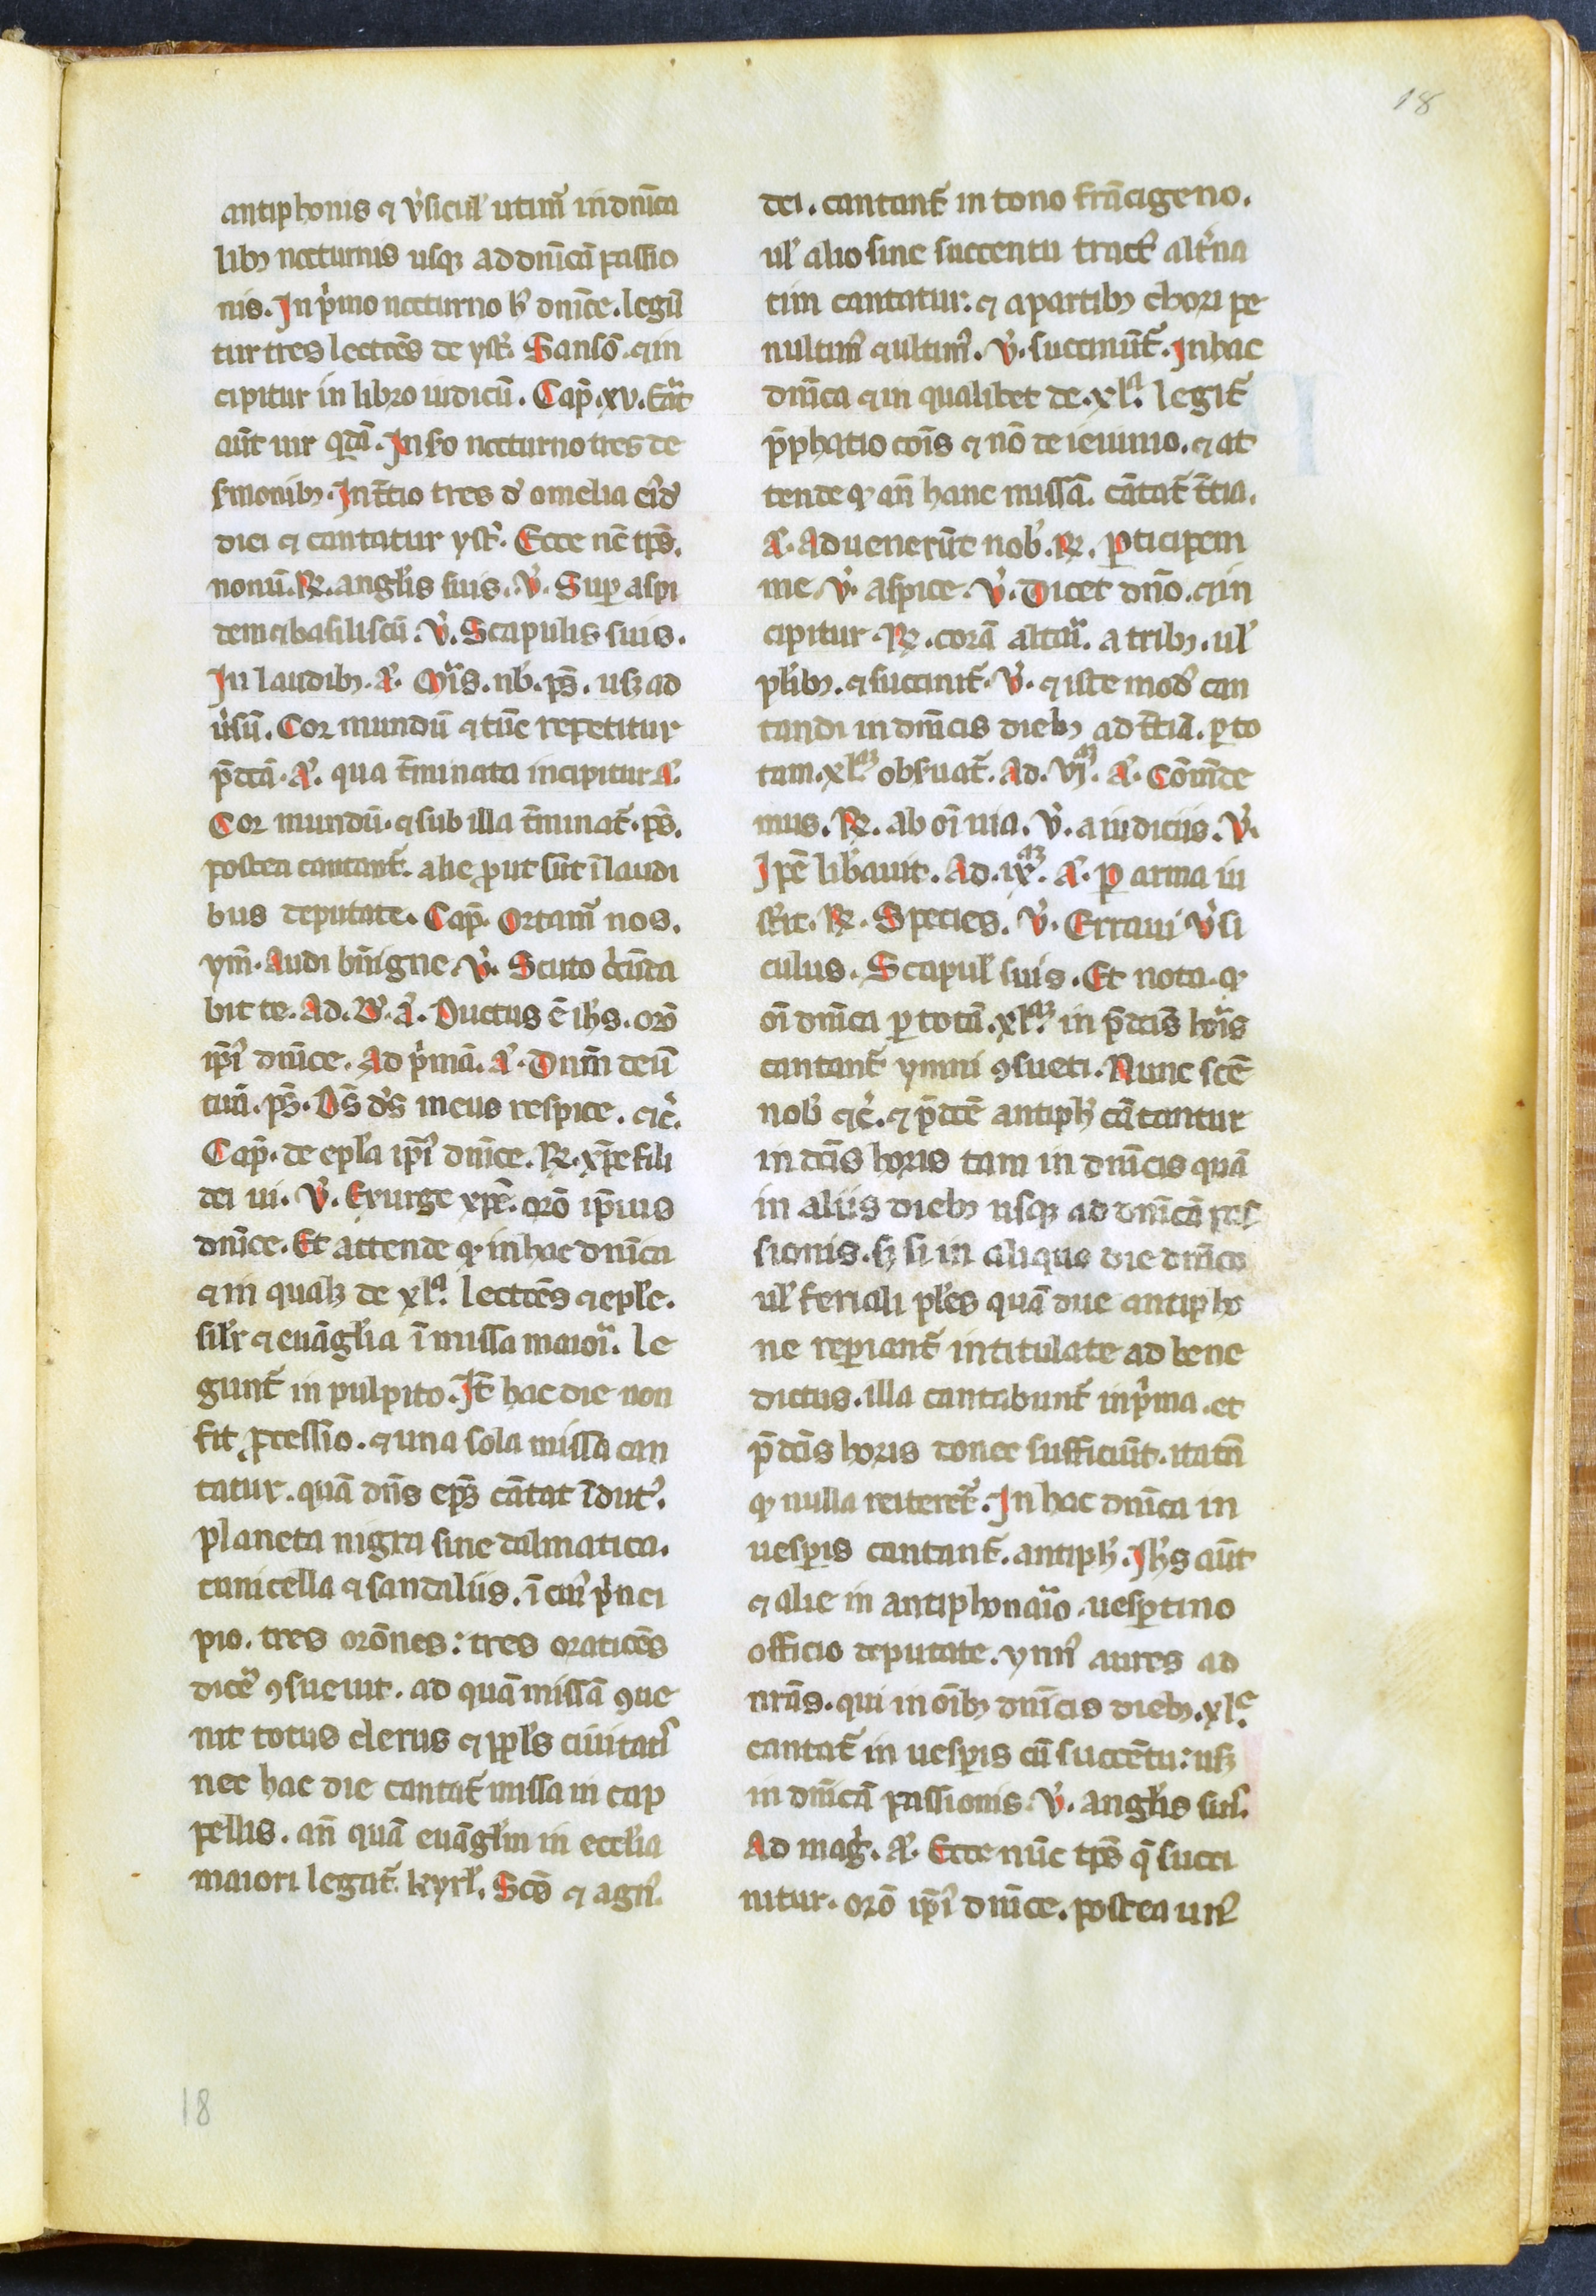 18
antiphonis ⁊ v̓sicul̓ utim̃ in dn̄ica
lib⁊ nocturnis usq⁊ ad dn̄icā passio
nis. In p̓mo nocturno h̓ dn̄ice. legū
tur tres lectōes de yst̓. Sansō. ⁊ in
cipitur in libro iudicū. Cap̄. xv. Erat
aūt uir q̄dā. In s̄o nocturno tres de
s̓monib⁊. In t̄tio tres d̓ omelia ei̓d̓
diei ⁊ cantatur yst̓. Ecce nc̄ tp̄s.
nonū. ℟. angl̓is suis. v̓. Sup̱ aspi
dem ⁊ basiliscū. v̓. Scapulis suis.
In laudib⁊. a᷎. Mis̓. nb̓. ps̄. usq⁊ ad
v̓sū. Cor mundū ⁊ tūc repetitur
p̄dcā. a᷎. qua t̄minata incipitur a᷎.
Cor mundū. ⁊ sub illa t̄minat̃. ps̄.
postea cantant̃. alie ꝓut sūt ī laudi
bus deputate. Cap̄. Ortam̃ nos.
ym̄. Audi b̄nigne. v̓. Scuto c̓cūda
bit te. Ad. B᷎. a᷎. Ductus ē ih̄s. orō
ip̄i̓ dn̄ice. Ad p̓mā. a᷎. Dn̄m deū
tuū. ps̄. Ds̄ d̓s meus respice. ⁊c̓.
Cap̄. de ep̄la ip̄i̓ dn̄ice. ℟. xp̄e fili
dei ui. v̓. Exurge xp̄e. orō ip̄ius
dn̄ice. Et attende ꝙ in hac dn̄ica
⁊ in qual⁊ de xl᷎ᵃ. lectōes ⁊ ep̄le.
sil̓r ⁊ euāgl̓ia ī missa maiori. le
gunt̃ in pulpito. It̄ hac die non
fit ꝓcessio. ⁊ una sola missa can
tatur. quā dn̄s ep̄s cātat īdut̓.
planeta nigra sine dalmatica.
tunicella ⁊ sandaliis. ī cui̓ p̓nci
pio. tres orōnes: tres oratiōes
dic̓e ꝯsueuit. ad quā missā ꝯue
nit totus clerus ⁊ ppl̓s ciuitati̓
nec hac die cantat̃ missa in cap
pellis. an̄ quā euāgl̓iū in eccl̓ia
maiori legat̃. kyrl̓. Scō ⁊ agn̓.
dei. cantant̃ in tono frācigeno.
ul̓ alio sine succentu tract̓ alt̓na
tim cantatur: ⁊ a partib⁊ chori pe
nultim̓ ⁊ ultim̓. v̓. succinūt̃. In hac
dn̄ica ⁊ in qualibet de. xl᷎ᵃ. legit̃
p̄phatio cōis ⁊ nō de ieiunio. ⁊ at
tende ꝙ an̄ hanc missā. cātat̃ t̄tia.
a᷎. Aduenerūt nob̓. ℟. p̱ticipem
me v̓. aspice. v̓. Dicet dn̄o. ⁊ in
cipitur. ℟. corā altari. a trib⁊. ul̓
pl̓ib⁊. ⁊ succinit̃. v̓. ⁊ iste mod̓ can
tandi in dn̄icis dieb⁊ ad t̄tiā. p̱ to
tam. xl᷎ᵃᵐ obs̓uat̃. Ad. vj᷎ᵃᵐ. a᷎. Cōm̄de
mus. ℟. ab oī uia. v̓. a iudiciis. v̓.
Ip̄e lib̓auit. Ad. ix᷎ᵃᵐ. a᷎. p̱ arma iu
st̓it. ℟. Species. v̓. Erraui v̓si
culus. Scapul̓ suis. Et nota. ꝙ
oī dn̄ica p̱ totā. xl᷎ᵃᵐ. in p̄dcīs hor̓is
cantant̃ ymni ꝯsueti. Nunc scē
nob̓ ⁊c̓. ⁊ p̄dcē antiph̓ cātantur
in dcīs horis tam in dn̄icis quā
in aliis dieb⁊ usq⁊ ad dn̄icā pas
sionis. s⁊ si in aliqua die dn̄ica
ul̓ feriali pl̓es quā due antipho
ne rep̱iant̃ intitulate ad bene
dictus. illa cantabunt̃ in p̓ma. et
p̄dcīs horis donec sufficiūt. ita tn̄
ꝙ nulla reiteret̃. In hac dn̄ica in
uesp̱is cantant̃. antiph̓. Ih̄s aūt
⁊ alie in antiphonario. uesp̱tino
officio deputate. ymn̓ aures ad
nr̄as. qui in oīb⁊ dn̄icis dieb⁊. xl᷎ᵉ.
cantat̃ in uesp̱is cū succētu: us⁊
in dn̄icā passionis. v̓. angl̓is suis.
Ad mag̓. a᷎. Ecce nūc tp̄s q̄ succi
nitur. orō ip̄i̓ dn̄ice. postea un̓
18